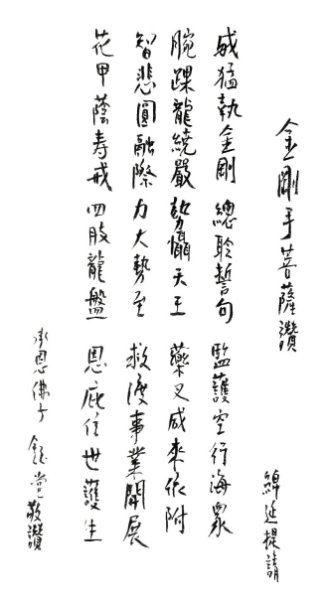 金剛手菩薩讚
綽延提請
威猛執金剛 總聆誓句 監護空行海眾
腕踝龍繞嚴 勢懾天王 藥叉咸來依附
智悲圓融際 力大勢至 救渡事業開展
花甲蔭壽戒 四肢龍盤 恩庇住世護生
承恩佛子 敬讚